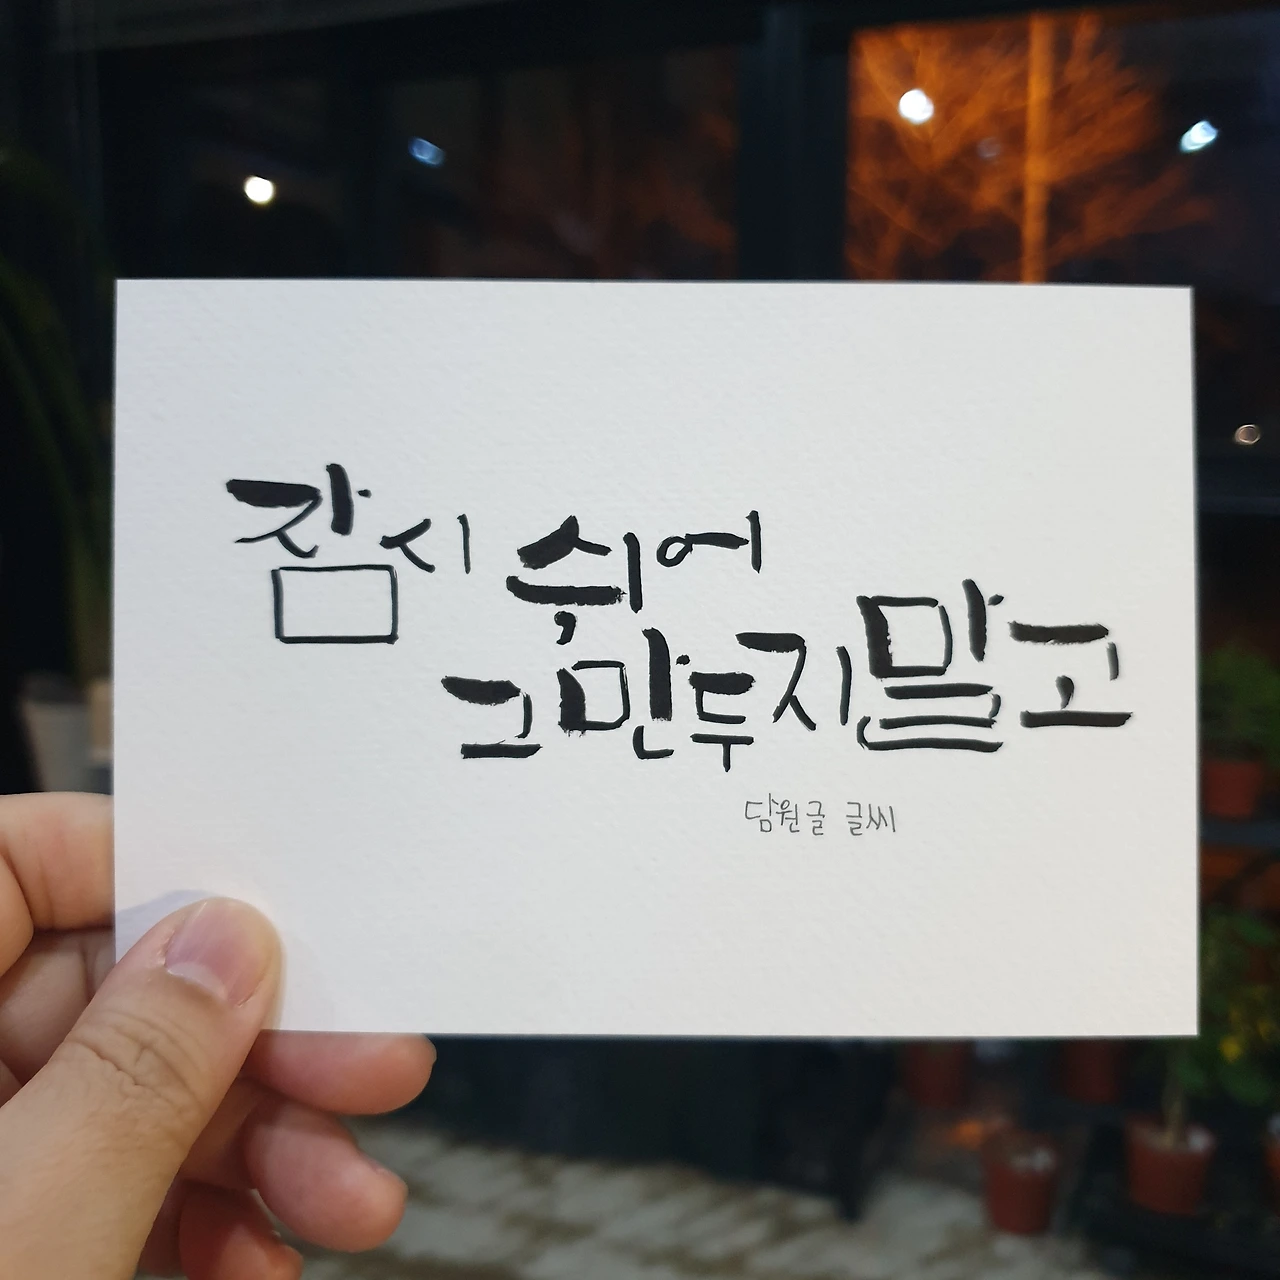 잠시 쉬어
그만두지말고
담원글 글씨